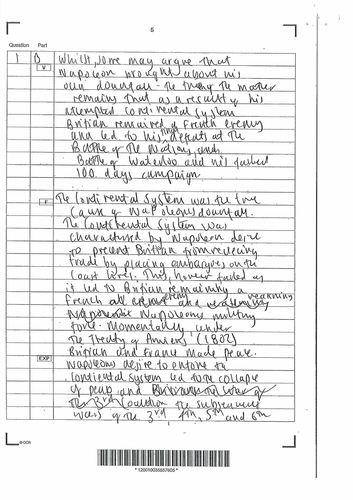 5
Question Part
1 D Whilst, some may argue that
V Napoleon brought about his
own downfall - the matter
remains that as a result of his
attempted continental system
Britian remained a French enemy
and led to his final defeats at the
Battle of the Nations, and
Battle of Waterloo and his failed
100 days campaign
F The Continental System was the true
Cause of Napoleons downfall.
The Continental System was
characterised by Napoleon desire
to prevent Britian from recieving
trade by placing embargoes on the
Coast lines. This, however failed as
it led to Britian remaining a
French enemy and weakening
Napoleons military
force. Momentarily, under
the Treaty of Amiens (1802)
EXP Britian and France made peace.
Napoleons desire to enforce the
Continental System led to the collapse
of peace and
the 3rd Coalition the subsequent
wars of the 3rd 4th, 5th and 6th
OCR